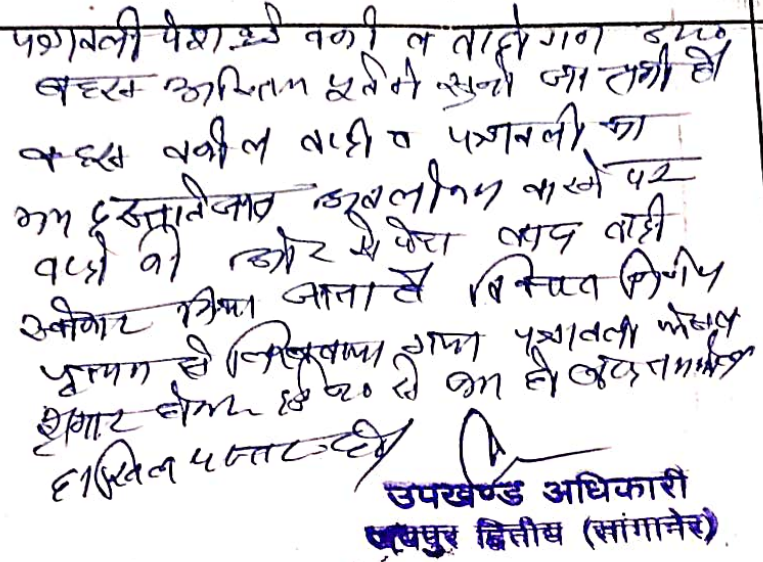 पत्रावली पेश हुई वकील वादी गण उप०
बहस अन्तिम पूर्व में सुनी जा चुकी है
बहस वकील वादी व पत्रावली का
मय दस्तावेजात अवलोकन करने पर
वादी की ओर से पेश वाद वादी
स्वीकार किया जाता है विस्तृत निर्णय
पृथक से लिखवाया गया पत्रावली फैसल
शुमार होकर से कम हो बाद तामील
दाखिल दफ्तर हो
उपखण्ड अधिकारी
जयपुर द्वितीय (सांगानेर)